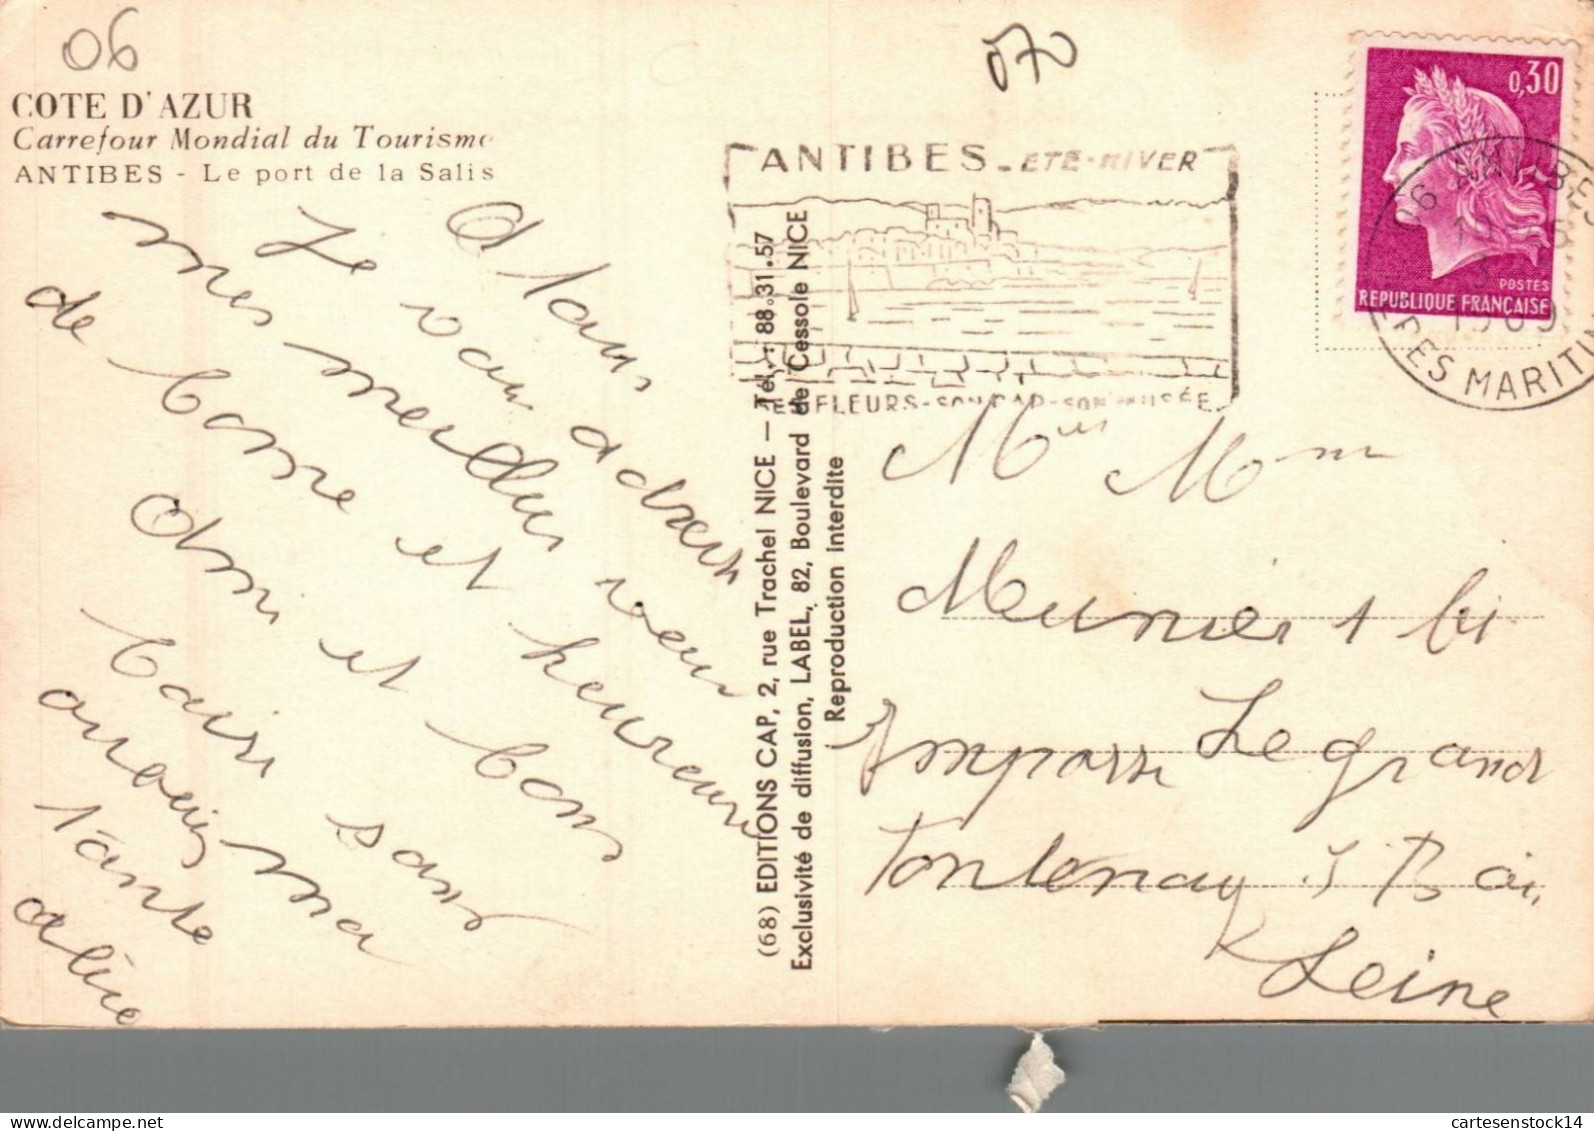 06
070
COTE D'AZUR
Carrefour Mondial du Tourisme
ANTIBES - Le port de la Salis
A tous
Je vous adresse
mes meilleurs voeux
de bonne et heureuse
Ami et bons
baisers sans
oublier ma
tante
aline
(68) EDITIONS CAP, 2, rue Trachel NICE — Tél.: 88.31.57
Exclusivité de diffusion, LABEL, 82, Boulevard de Cessole NICE
Reproduction interdite
ANTIBES - ETE-HIVER
FLEURS - SON CAP - SON MUSÉE
0,30
POSTES
REPUBLIQUE FRANÇAISE
06 ANTIBES
1969
PES MARITI
Mr Mme
Meunier 1 bi
Impasse Legrand
Fontenay s Boi
Seine
cartesenstock14